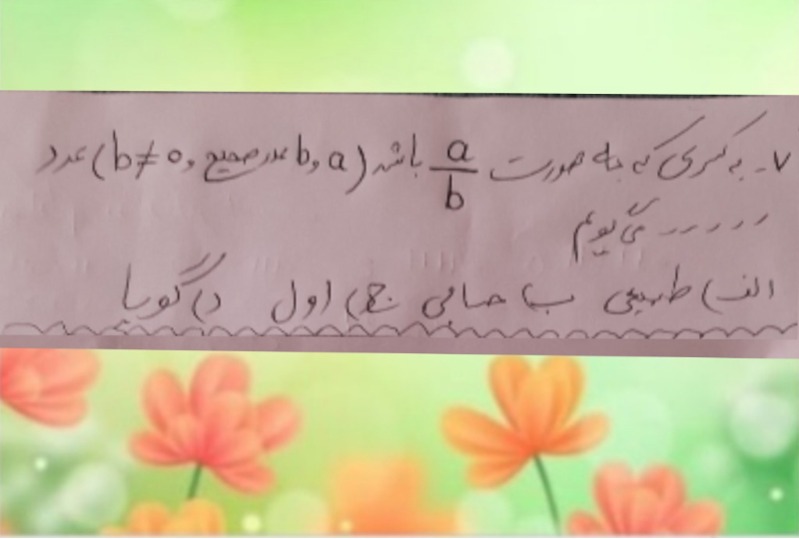 ۷- به کسری که به صورت a/b باشد (a و b عدد صحیح و b≠0) عدد
..... می گویم
الف) طبیعی ب) حسابی ج) اول د) گویا